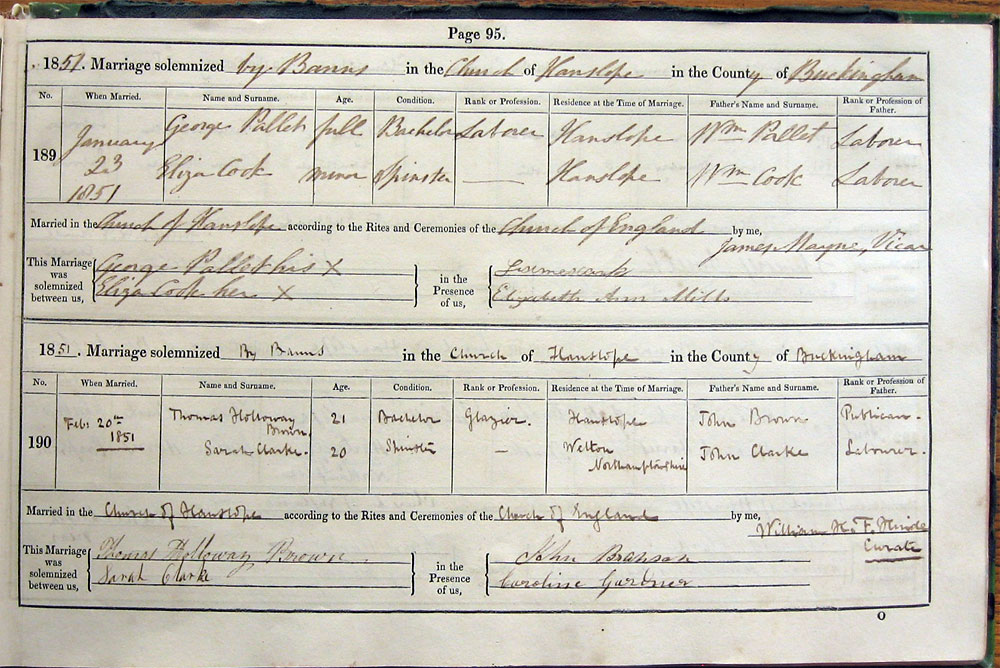 Page 95.
1851. Marriage solemnized by Banns in the Church of Hanslope in the County of Buckingham
No. When Married. Name and Surname. Age. Condition. Rank or Profession. Residence at the Time of Marriage. Father's Name and Surname. Rank or Profession of Father.
189 January 23 1851 George Pallet full Bachelor Laborer Hanslope Wm Pallet Laborer
Eliza Cook minor Spinster — Hanslope Wm Cook Laborer
Married in the Church of Hanslope according to the Rites and Ceremonies of the Church of England by me,
James Mayne, Vicar
This Marriage was solemnized between us, George Pallet his X in the Presence of us,
Eliza Cook her X Elizabeth Ann Mills
1851. Marriage solemnized By Banns in the Church of Hanslope in the County of Buckingham
No. When Married. Name and Surname. Age. Condition. Rank or Profession. Residence at the Time of Marriage. Father's Name and Surname. Rank or Profession of Father.
190 Feb: 20th 1851 Thomas Holloway Brown. 21 Bachelor Glazier. Hanslope John Brown Publican.
Sarah Clarke. 20 Spinster — Welton Northamptonshire John Clarke Labourer.
Married in the Church of Hanslope according to the Rites and Ceremonies of the Church of England by me,
William H. F. Curate
This Marriage was solemnized between us, Thomas Holloway Brown in the Presence of us, John Branson
Sarah Clarke Caroline Gardner
O